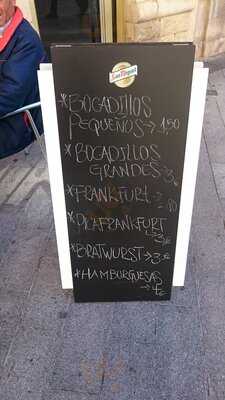 San Miguel
*BOCADILLOS
PEQUEÑOS→1,50
*BOCADILLOS
GRANDES→3€
*FRANKFURT→
*PICAFRANKFURT
→3€
*BRATWURST→3€
*HAMBURGUESAS
→4€